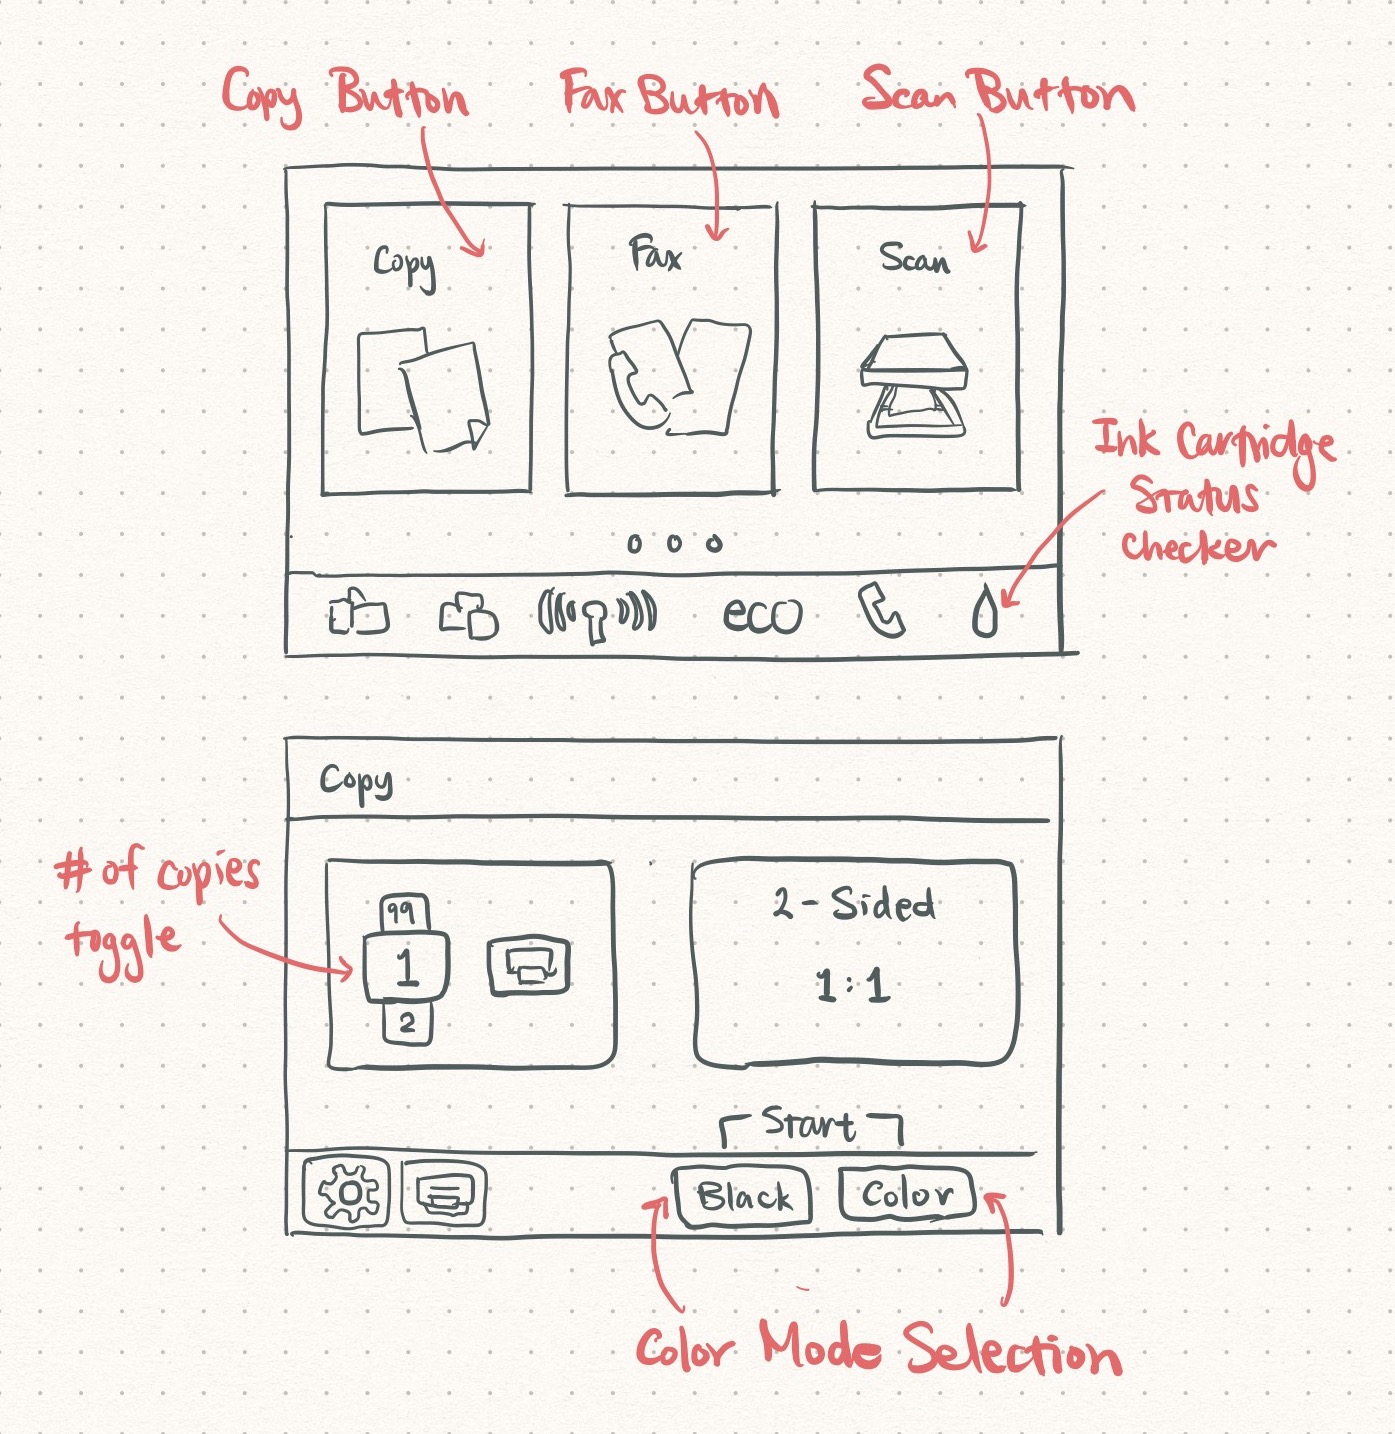 Copy Button
Fax Button
Scan Button
Copy
Fax
Scan
Ink Cartridge
Status
checker
eco
Copy
# of copies
toggle
99
1
2
2-Sided
1:1
Start
Black
Color
Color Mode Selection